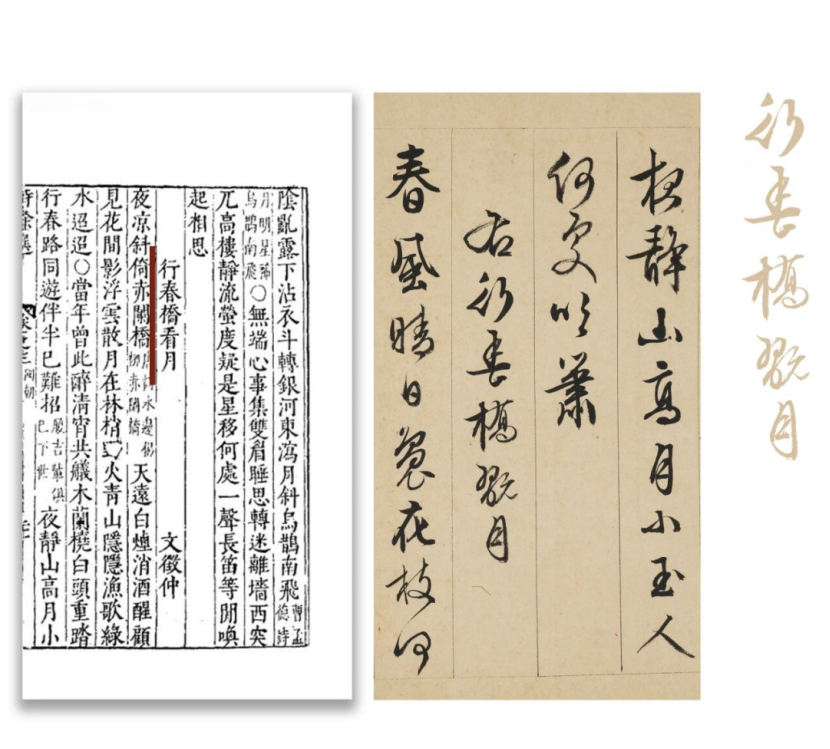 陰亂露下沾衣斗轉銀河東瀉月斜烏鵲南飛曹孟德詩
月明星稀烏鵲南飛〇無端心事集雙眉睡思轉迷離墻西突
兀高樓靜流螢度疑是星移何處一聲長笛等閒喚
起相思
行春橋看月 文徵仲
夜凉斜倚赤闌橋唐詩水邊楊柳赤闌橋天遠白煙消酒醒顧
見花間影浮雲散月在林梢火青山隱隱漁歌綠
水迢迢〇當年曾此醉清宵共艤木蘭橈白頭重踏
行春路同遊伴半已難招嚴吉輩俱已下世夜靜山高月小
夜靜山高月小玉人
何處吹簫
右行春橋翫月
春風晴日裊花枝何
行春橋翫月